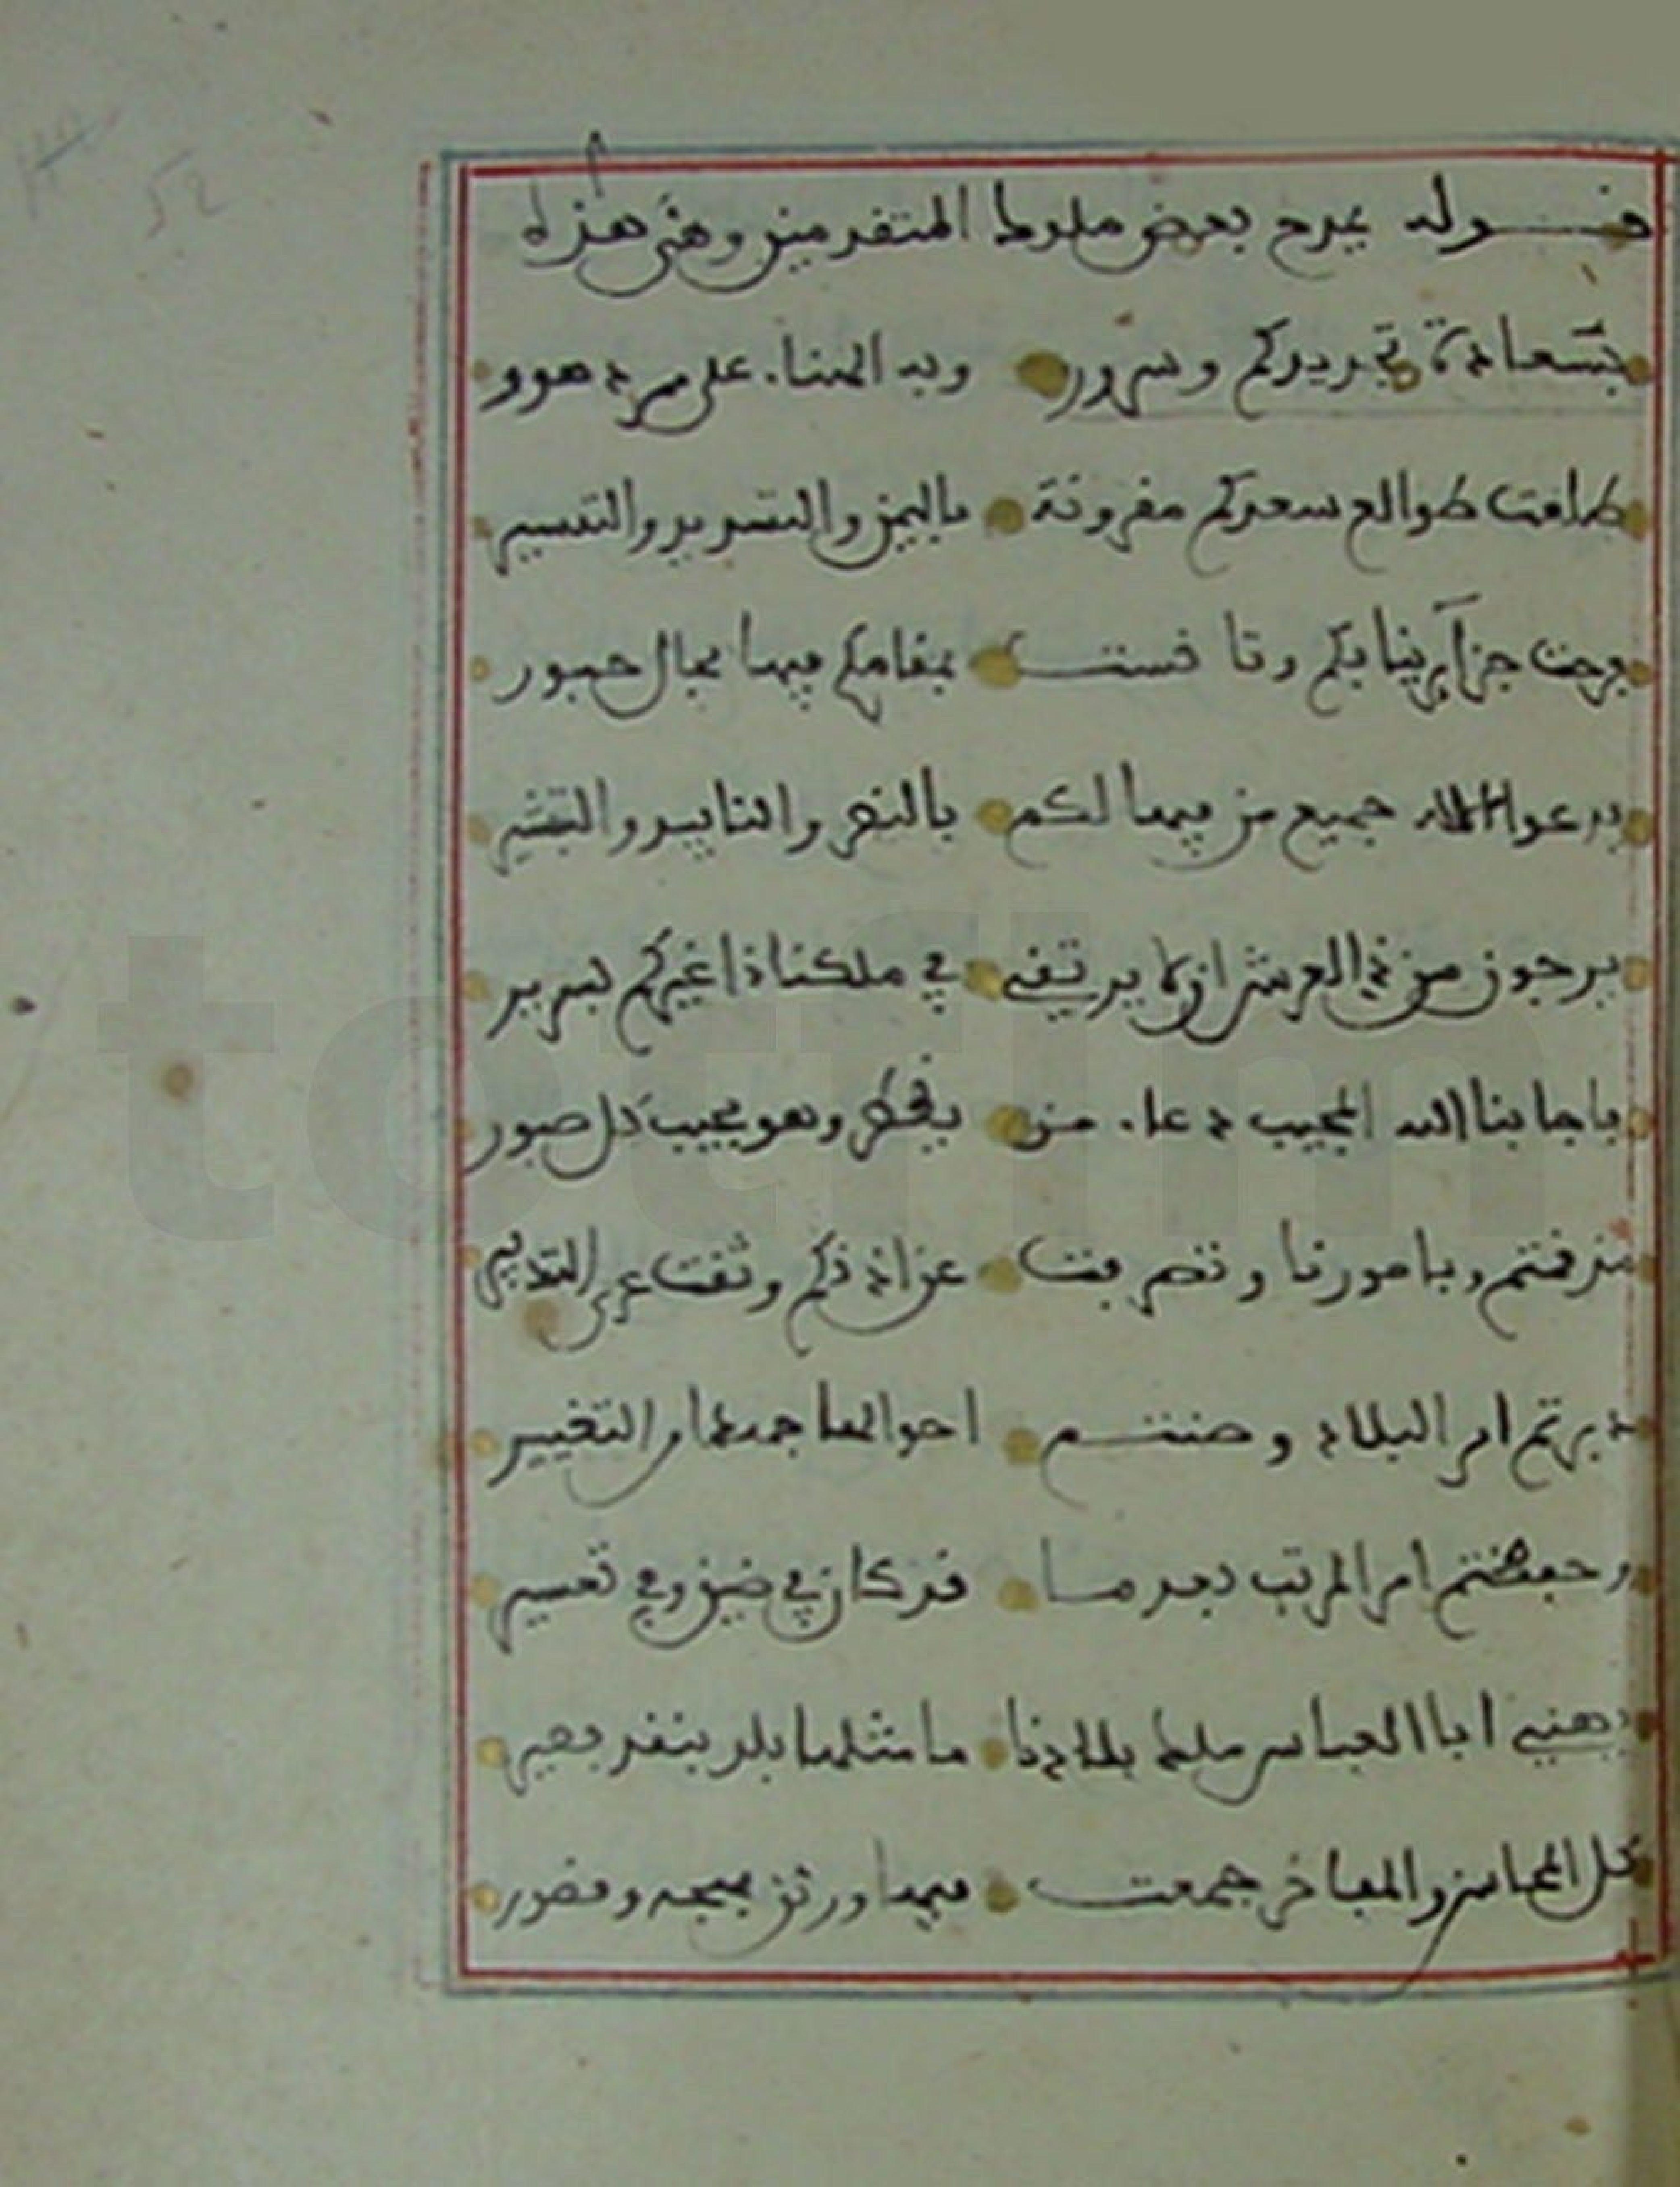 قوله يمدح بعض ملوكها المتقدمين وهي هذه
بسعادة تجديدكم وسرور وبه الهناء على مر دهور
طلعت طوالع سعدكم مقرونة باليمن والتسديد والتيسير
فرحت جزائرنا بكم وتا نست بمقامكم فيها مجال حبور
يدعوا الاله جميع من فيها لكم بالنصر والتاييد والتبشير
يرجون من ذي العرش ان لا يرتقي في ملكنا ذا غيركم لسرير
فاجابنا الله المجيب دعاء من يضطر وهو مجيب كل صبور
ورفقتم بامورنا وتصرفت عن اذنكم وثقت عرى التدبير
دبرتم امر البلاد وصنتم احوالها جمعا من التغيير
وحفظتم امر المراتب بعد ما قد كان في ضيق وفي تعسير
يهني ابا العباس ملك بلادنا ما مثلها بلد بنقد بصير
كل المحاسن والمفاخر جمعت فيها ورثق بهجة وقصور
52